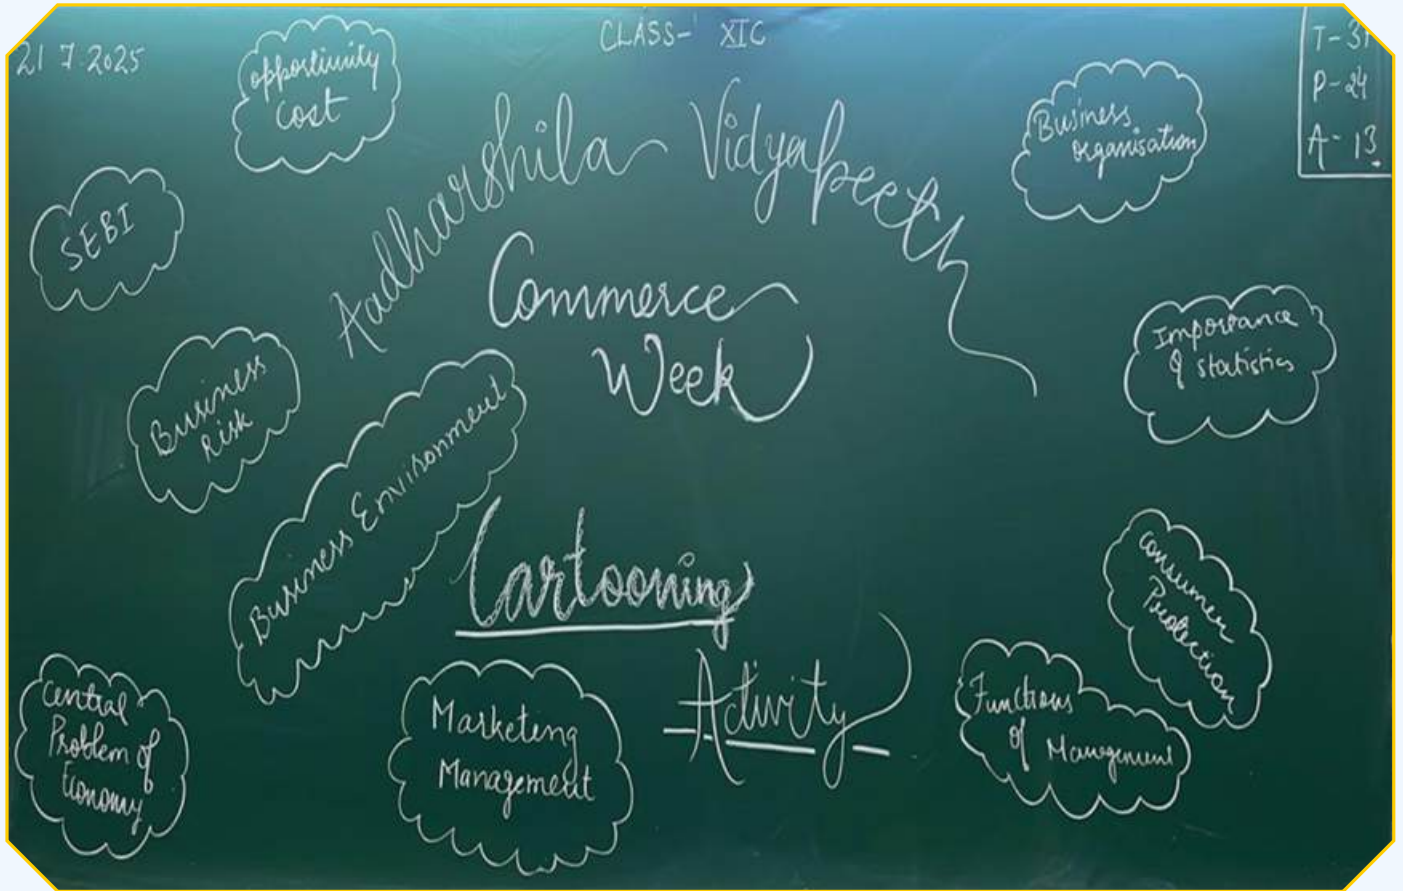 21 7 2025
CLASS- XIC
T- 37
P- 24
A- 13
opportunity
Cost
Aadharshila Vidyapeeth
Business
organisation
SEBI
Commerce
Week
Importance
of statistics
Business
Risk
Business Environment
Cartooning
Activity
Consumer
Protection
Central
Problem of
Economy
Marketing
Management
Functions
of Management